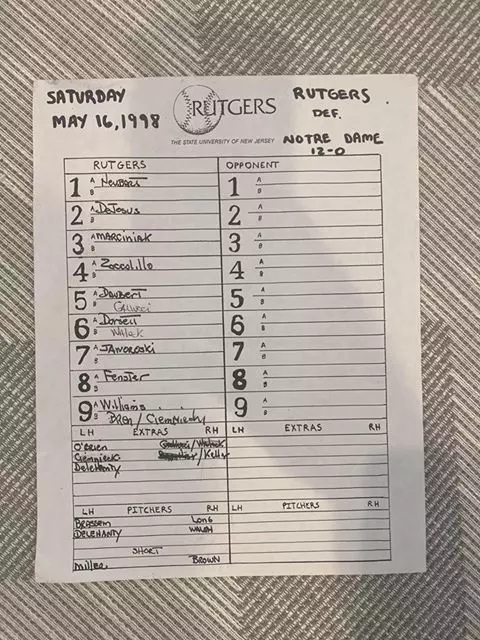 SATURDAY
MAY 16, 1998
RUTGERS
THE STATE UNIVERSITY OF NEW JERSEY
RUTGERS
DEF.
NOTRE DAME
12-0
RUTGERS OPPONENT
1 A Neubart 1 A
B B
2 A DeJesus 2 A
B B
3 A MARCINIAK 3 A
B B
4 A Zoccolillo 4 A
B B
5 A Daubert 5 A
B Gallucci B
6 A Dorsey 6 A
B Walack B
7 A JAWOROSKI 7 A
B B
8 A Fenster 8 A
B B
9 A Williams 9 A
B / B
LH EXTRAS RH LH EXTRAS RH
O'Brien /
/ Kelly
Delehanty
LH PITCHERS RH LH PITCHERS RH
Long
DELEHANTY WALSH
SHORT
Miller BROWN